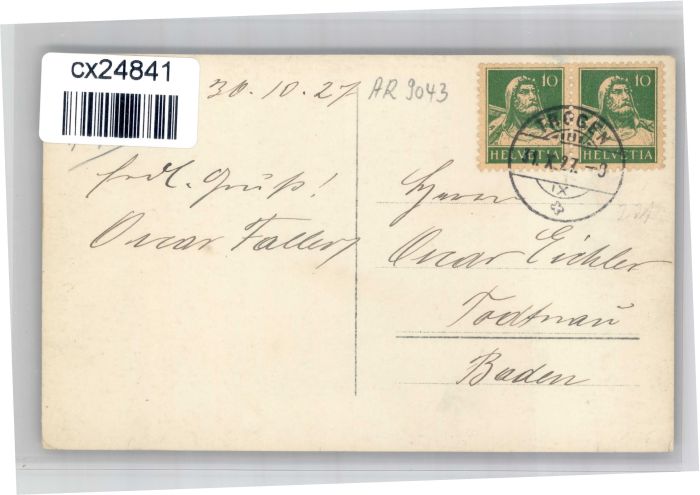 cx24841
30.10.27
AR 9043
10
10
HELVETIA
HELVETIA
TROGEN
IX
frdl. Gruß!
Oscar Faller
Herrn
Oscar Eichler
Todtnau
Baden